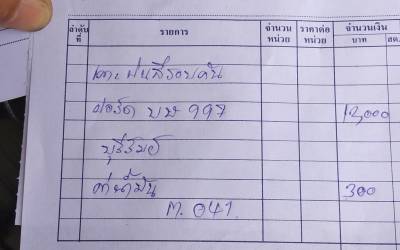 ลำดับที่ รายการ จำนวนหน่วย ราคาต่อหน่วย จำนวนเงิน
บาท สต.
เคาะ พ่นสีรอบคัน
ฟอร์ด บษ 997 12,000
บุรีรัมย์
ค่าน้ำมัน 300
M. 041.